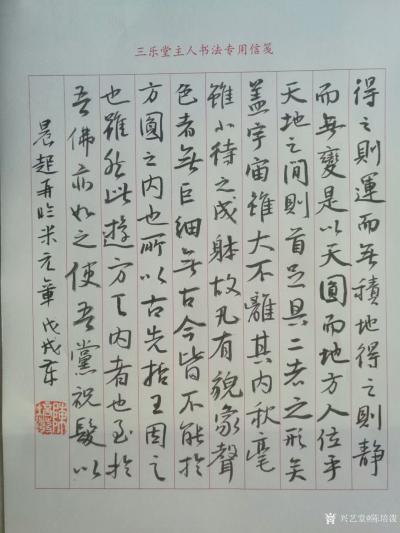 三乐堂主人书法专用信笺
得之則運而無積地得之則靜
而無變是以天圓而地方人位乎
天地之間則首足具二者之形矣
蓋宇宙雖大不離其内秋毫
雖小待之成躰故凡有貌象聲
色者無巨細無古今皆不能於
方圓之内也所以古先哲王因之
也雖然此遊方之内者也至於
吾佛亦如之使吾黨祝髮以
晨起再临米元章戊戌年
兴艺堂@陈培泼